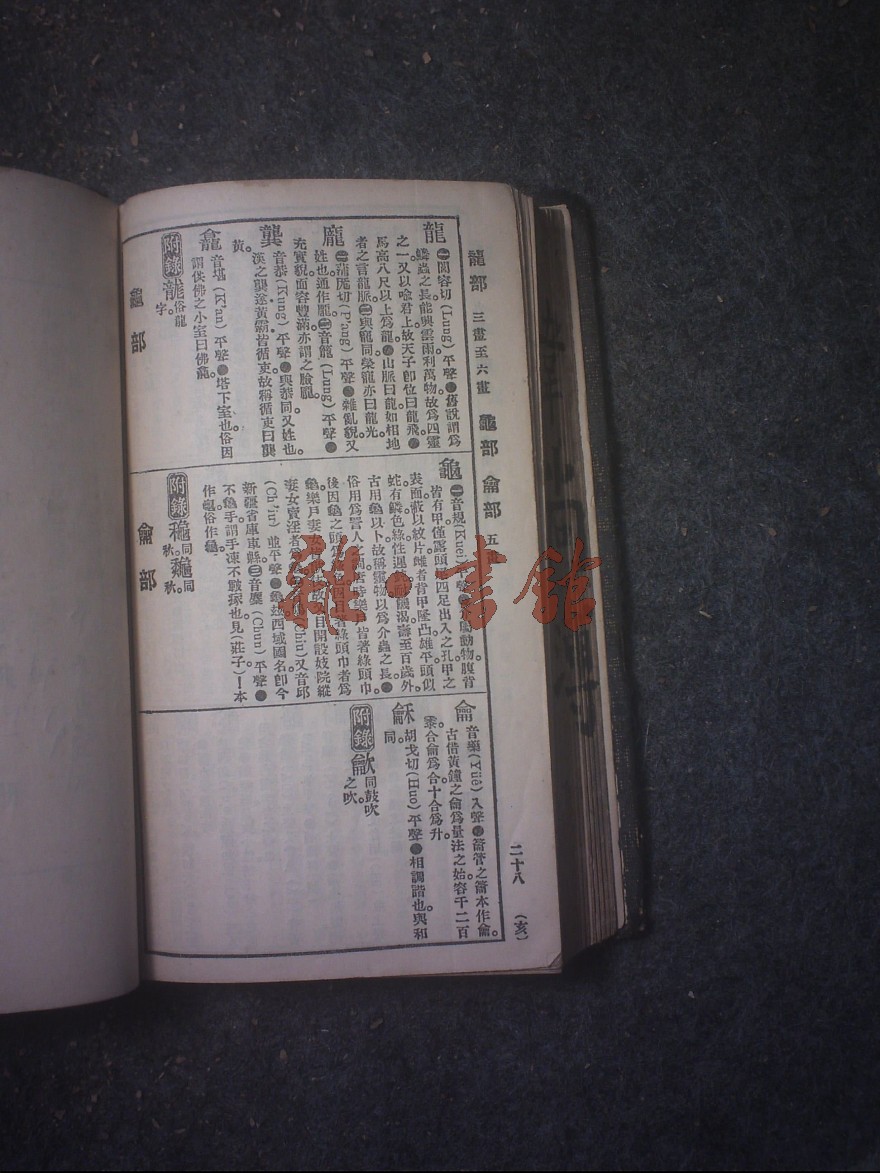 龍部 三畫至六畫 龜部 龠部 五
二十八 (亥)
龍
㊀閭容切(Lung)平聲●舊說謂爲
鱗蟲之長能興雲雨利萬物故爲四靈
之一又以喩君上故天子卽位曰龍飛●
馬高八尺以上爲龍●山脈曰龍如相地
者之言龍脈㊁與寵同榮寵亦曰龍光
龐
㊀蒲尨切(P'ang)平聲●雜亂貌又
姓也通作龎㊁音籠(Lung)平聲●
充實貌面容豐滿亦謂之臉龐
龔
音恭(Kung)平聲●與恭同又姓也
漢之龔遂黃霸皆循吏故稱循吏曰龔
黃。
龕
音堪(K'an)平聲●塔下室也俗因
謂供佛之小室曰佛龕。
附錄
俗龍字。
龜部
龜
㊀音規(Kuei)平聲動物腹背
皆有甲僅露頭四足出入之孔甲之
表面蔽以紋片雌者背甲隆凸雄平頭似
蛇有鱗色綠性遲飢渴壽至百歲外
古用龜以卜故稱靈物以爲介蟲之長●
俗用爲詈人之唐時樂皆著綠頭巾
後因龜之頭著綠頭巾者爲
龜樂戶妻目開設妓院縱
妻女賣淫者又音邱
(Ch'iu)並平聲●龜玆西域國名卽今
新疆省庫車縣㊂音麏(Chun)平聲●
不龜手謂手凍不皸瘃也見(莊子)！本
作龜俗作
附錄
龝同秋。
同秋。
龠部
龠
音藥(Yüê)入聲●籥管之籥本作龠。
古借黃鐘之龠爲量法之始容千二百
黍合龠爲合十合爲升。
龢
胡戈切(Huo)平聲●相調諧也與和
同。
附錄
龡同鼓吹之吹。
雜·書館